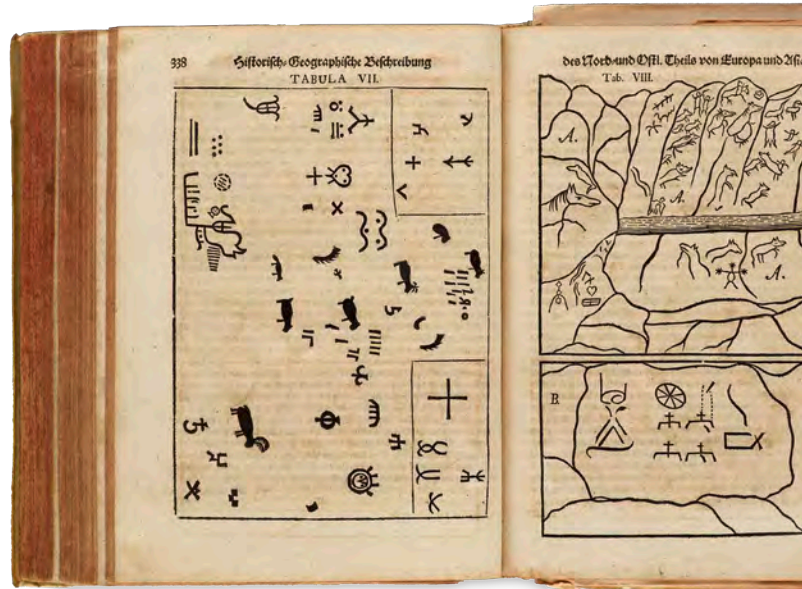 338 Historisch-Geographische Beschreibung
TABULA VII.
des Nord- und Ostl. Theils von Europa und Asia
Tab. VIII.
A.
A.
A.
B.